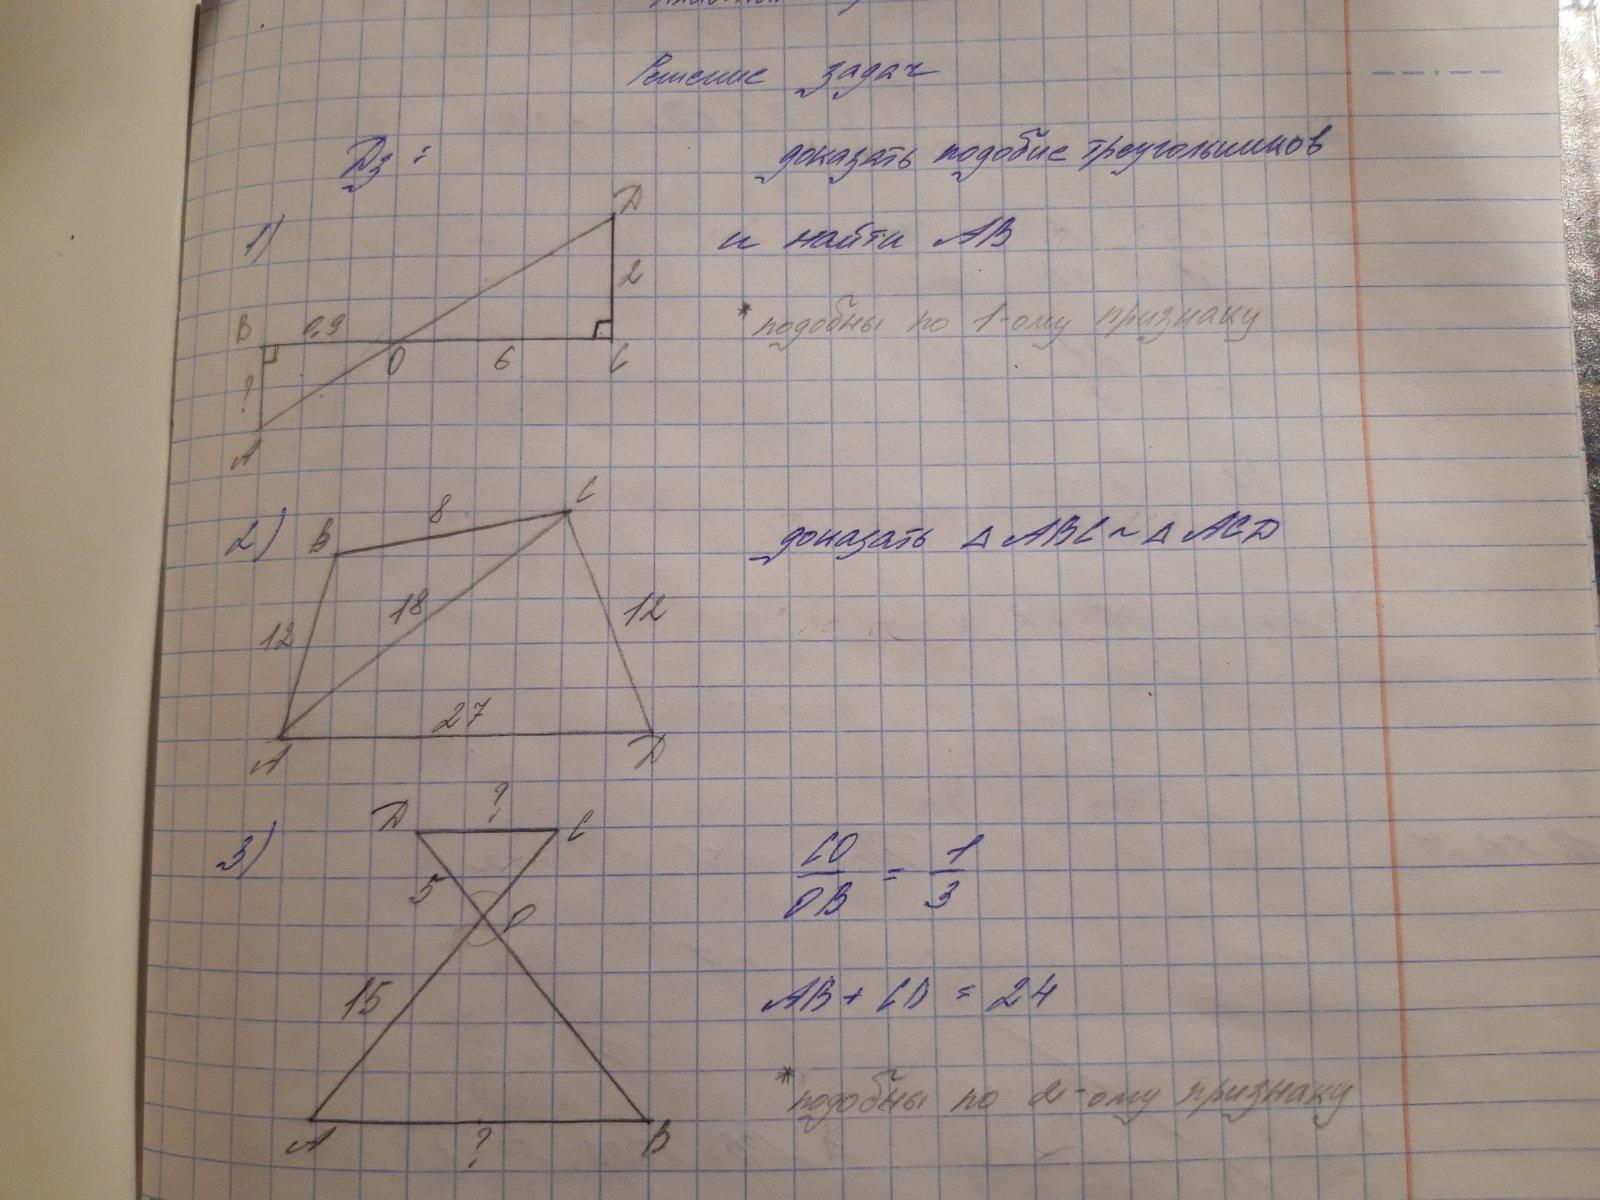 Решение задач
Дз:
доказать подобие треугольников
и найти AB
1)
D
2
B 0,9 O 6 C
?
A
* подобны по 1-ому признаку
2)
B 8 C
12 18 12
27
A D
доказать Δ ABC ~ Δ ACD
3)
D ? C
5
O
15
A ? B
CO/OB = 1/3
AB + CD = 24
* подобны по 2-ому признаку